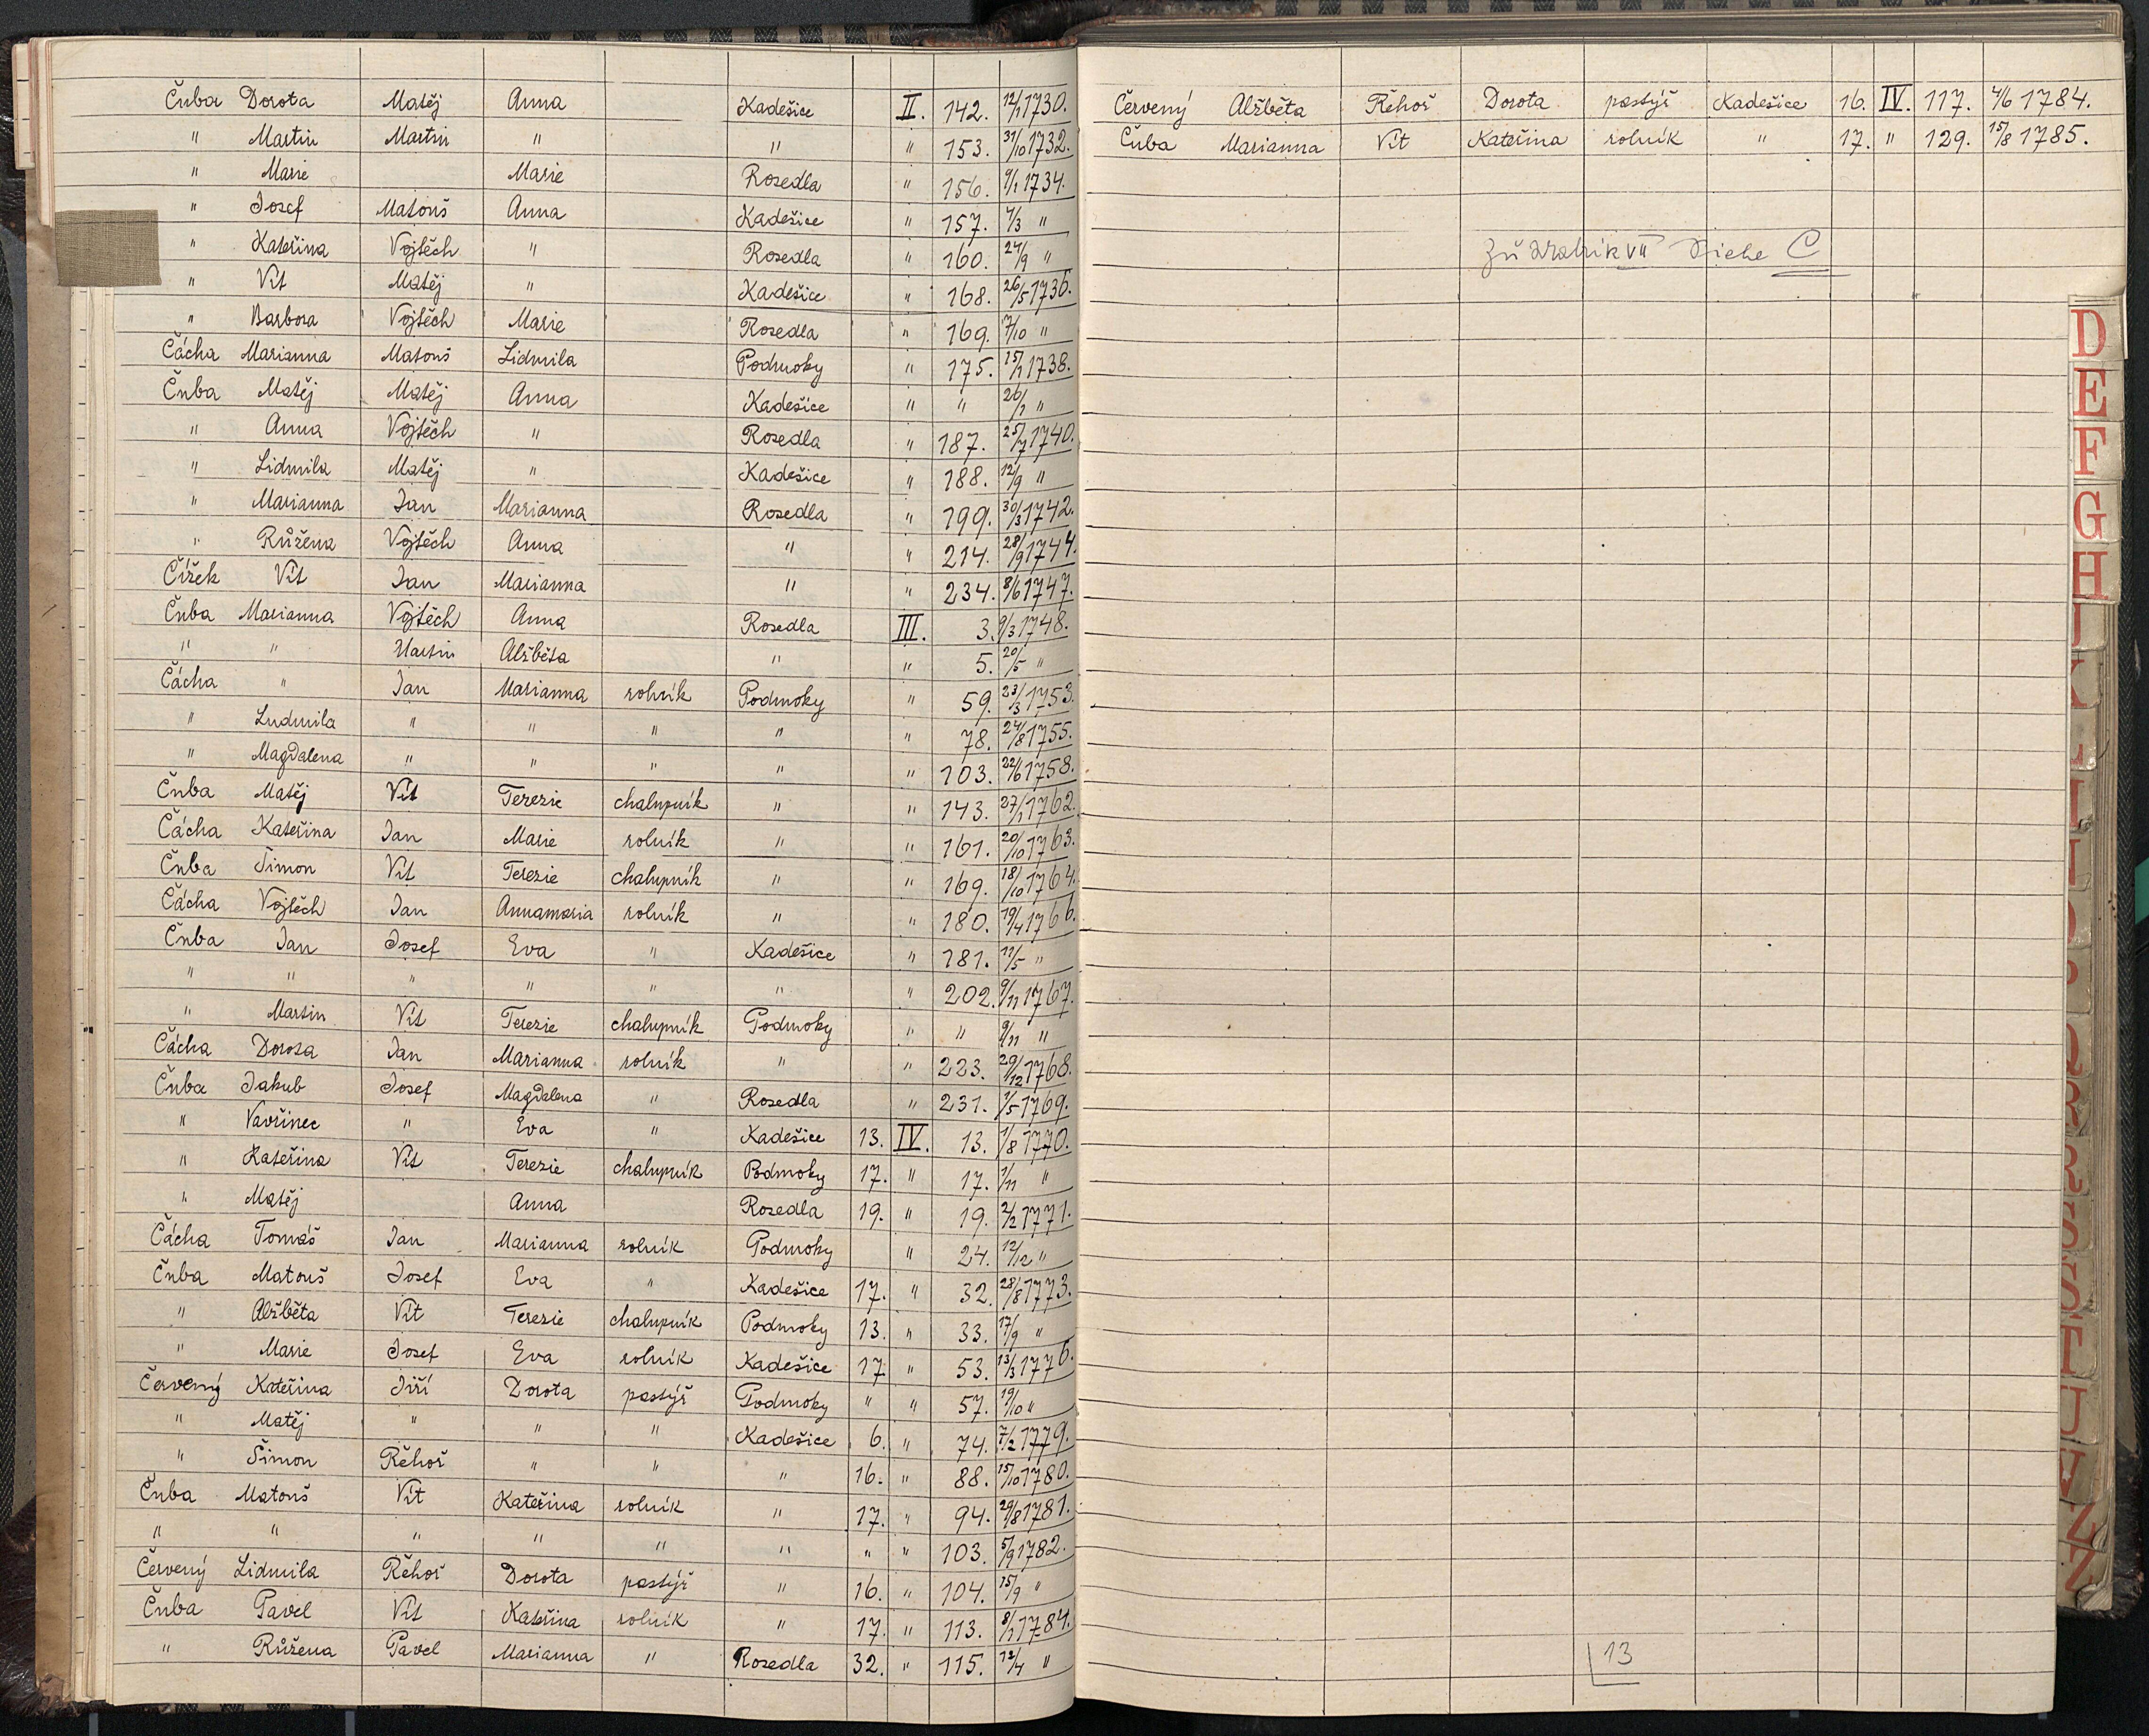 Čuba Dorota Matěj Anna Kadešice II. 142. 12/1 1730.
" Martin Martin " " " 153. 31/10 1732.
" Marie Marie Rosedla " 156. 9/1 1734.
" Josef Matouš Anna Kadešice " 157. 4/3 "
" Kateřina Vojtěch " Rosedla " 160. 24/9 "
" Vít Matěj " Kadešice " 168. 26/5 1736.
" Barbora Vojtěch Marie Rosedla " 169. 7/10 "
Čácha Marianna Matouš Lidmila Podmoky " 175. 15/1 1738.
Čuba Matěj Matěj Anna Kadešice " " 26/1 "
" Anna Vojtěch " Rosedla " 187. 25/7 1740.
" Lidmila Matěj " Kadešice " 188. 12/9 "
" Marianna Jan Marianna Rosedla " 199. 30/3 1742.
" Růžena Vojtěch Anna " " 214. 28/9 1744.
Čížek Vít Jan Marianna " " 234. 8/6 1747.
Čuba Marianna Vojtěch Anna Rosedla III. 3. 9/3 1748.
" " Martin Alžběta " " 5. 20/5 "
Čácha " Jan Marianna rolník Podmoky " 59. 23/3 1753.
" Ludmila " " " " " 78. 24/8 1755.
" Magdalena " " " " " 103. 22/6 1758.
Čuba Matěj Vít Terezie chalupník " " 143. 27/1 1762.
Čácha Kateřina Jan Marie rolník " " 161. 20/10 1763.
Čuba Šimon Vít Terezie chalupník " " 169. 18/10 1764.
Čácha Vojtěch Jan Annamaria rolník " " 180. 19/4 1766.
Čuba Jan Josef Eva " Kadešice " 181. 11/5 "
" " " " " " " 202. 9/11 1767.
" Martin Vít Terezie chalupník Podmoky " " 9/11 "
Čácha Dorota Jan Marianna rolník " " 223. 29/12 1768.
Čuba Jakub Josef Magdalena " Rosedla " 231. 1/5 1769.
" Vavřinec " Eva " Kadešice 13. IV. 13. 1/8 1770.
" Kateřina Vít Terezie chalupník Podmoky 17. " 17. 1/11 "
" Matěj Anna Rosedla 19. " 19. 2/2 1771.
Čácha Tomáš Jan Marianna rolník Podmoky " 24. 12/12 "
Čuba Matouš Josef Eva " Kadešice 17. " 32. 28/8 1773.
" Alžběta Vít Terezie chalupník Podmoky 13. " 33. 17/9 "
" Marie Josef Eva rolník Kadešice 17 " 53. 13/3 1776.
Červený Kateřina Jiří Dorota pastýř Podmoky " " 57. 19/10 "
" Matěj " " " Kadešice 6. " 74. 7/2 1779.
" Šimon Řehoř " " " 16. " 88. 15/10 1780.
Čuba Matouš Vít Kateřina rolník " 17. " 94. 29/8 1781.
" " " " " " " " 103. 5/9 1782.
Červený Lidmila Řehoř Dorota pastýř " 16. " 104. 15/9 "
Čuba Pavel Vít Kateřina rolník " 17. " 113. 8/1 1784.
" Růžena Pavel Marianna " Rosedla 32. " 115. 12/4 "
Červený Alžběta Řehoř Dorota pastýř Kadešice 16. IV. 117. 4/6 1784.
Čuba Marianna Vít Kateřina rolník " 17. " 129. 15/8 1785.
Zu VII Siehe C
13
D
E
F
G
H